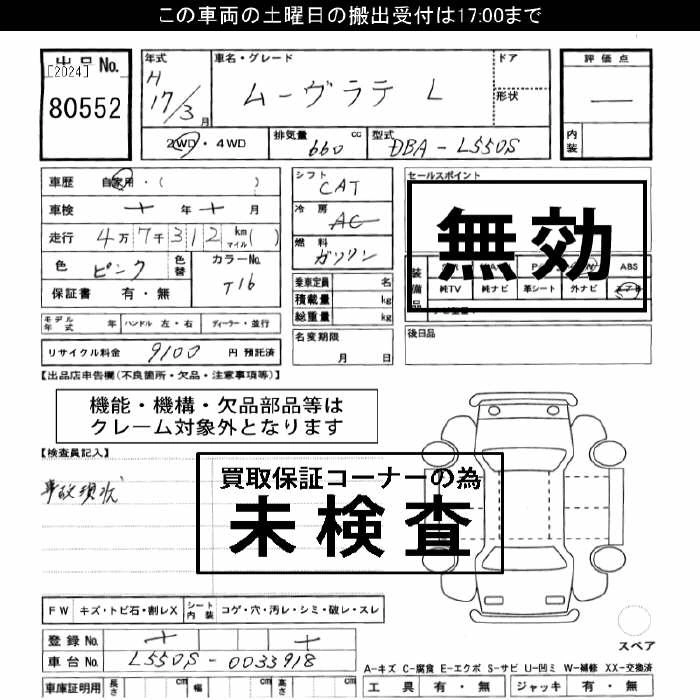 この車両の土曜日の搬出受付は17:00まで
出品No.
[2024]
80552
年式
H
17/3月
車名・グレード
ムーヴラテ L
ドア
形状
評価点
—
内装
2WD・4WD
排気量 660 cc
型式 DBA-L550S
車歴 自家用・( )
車検 年 月
走行 4万7千312 km マイル( )
色 ピンク 色替
カラーNo. T16
保証書 有・無
シフト CAT
冷房 AC
燃料 ガソリン
乗車定員 名
積載量 kg
総重量 kg
名変期限
月 日
セールスポイント
無効
装備品
ABS
純TV 純ナビ 革シート 外ナビ
後日品
モデル年式 年 ハンドル 左・右 ディーラー・並行
リサイクル料金 9100 円 預託済
【出品店申告欄(不良箇所・欠品・注意事項等)】
機能・機構・欠品部品等は
クレーム対象外となります
【検査員記入】
事故現状
買取保証コーナーの為
未検査
FW キズ・トビ石・割レX シート内装 コゲ・穴・汚レ・シミ・破レ・スレ
登録No.
車台No. L550S-0033918
車庫証明用 長さ cm 幅 cm 高さ cm
スペア
A-キズ C-腐食 E-エクボ S-サビ U-凹ミ W-補修 XX-交換済
工具 有・無 ジャッキ 有・無